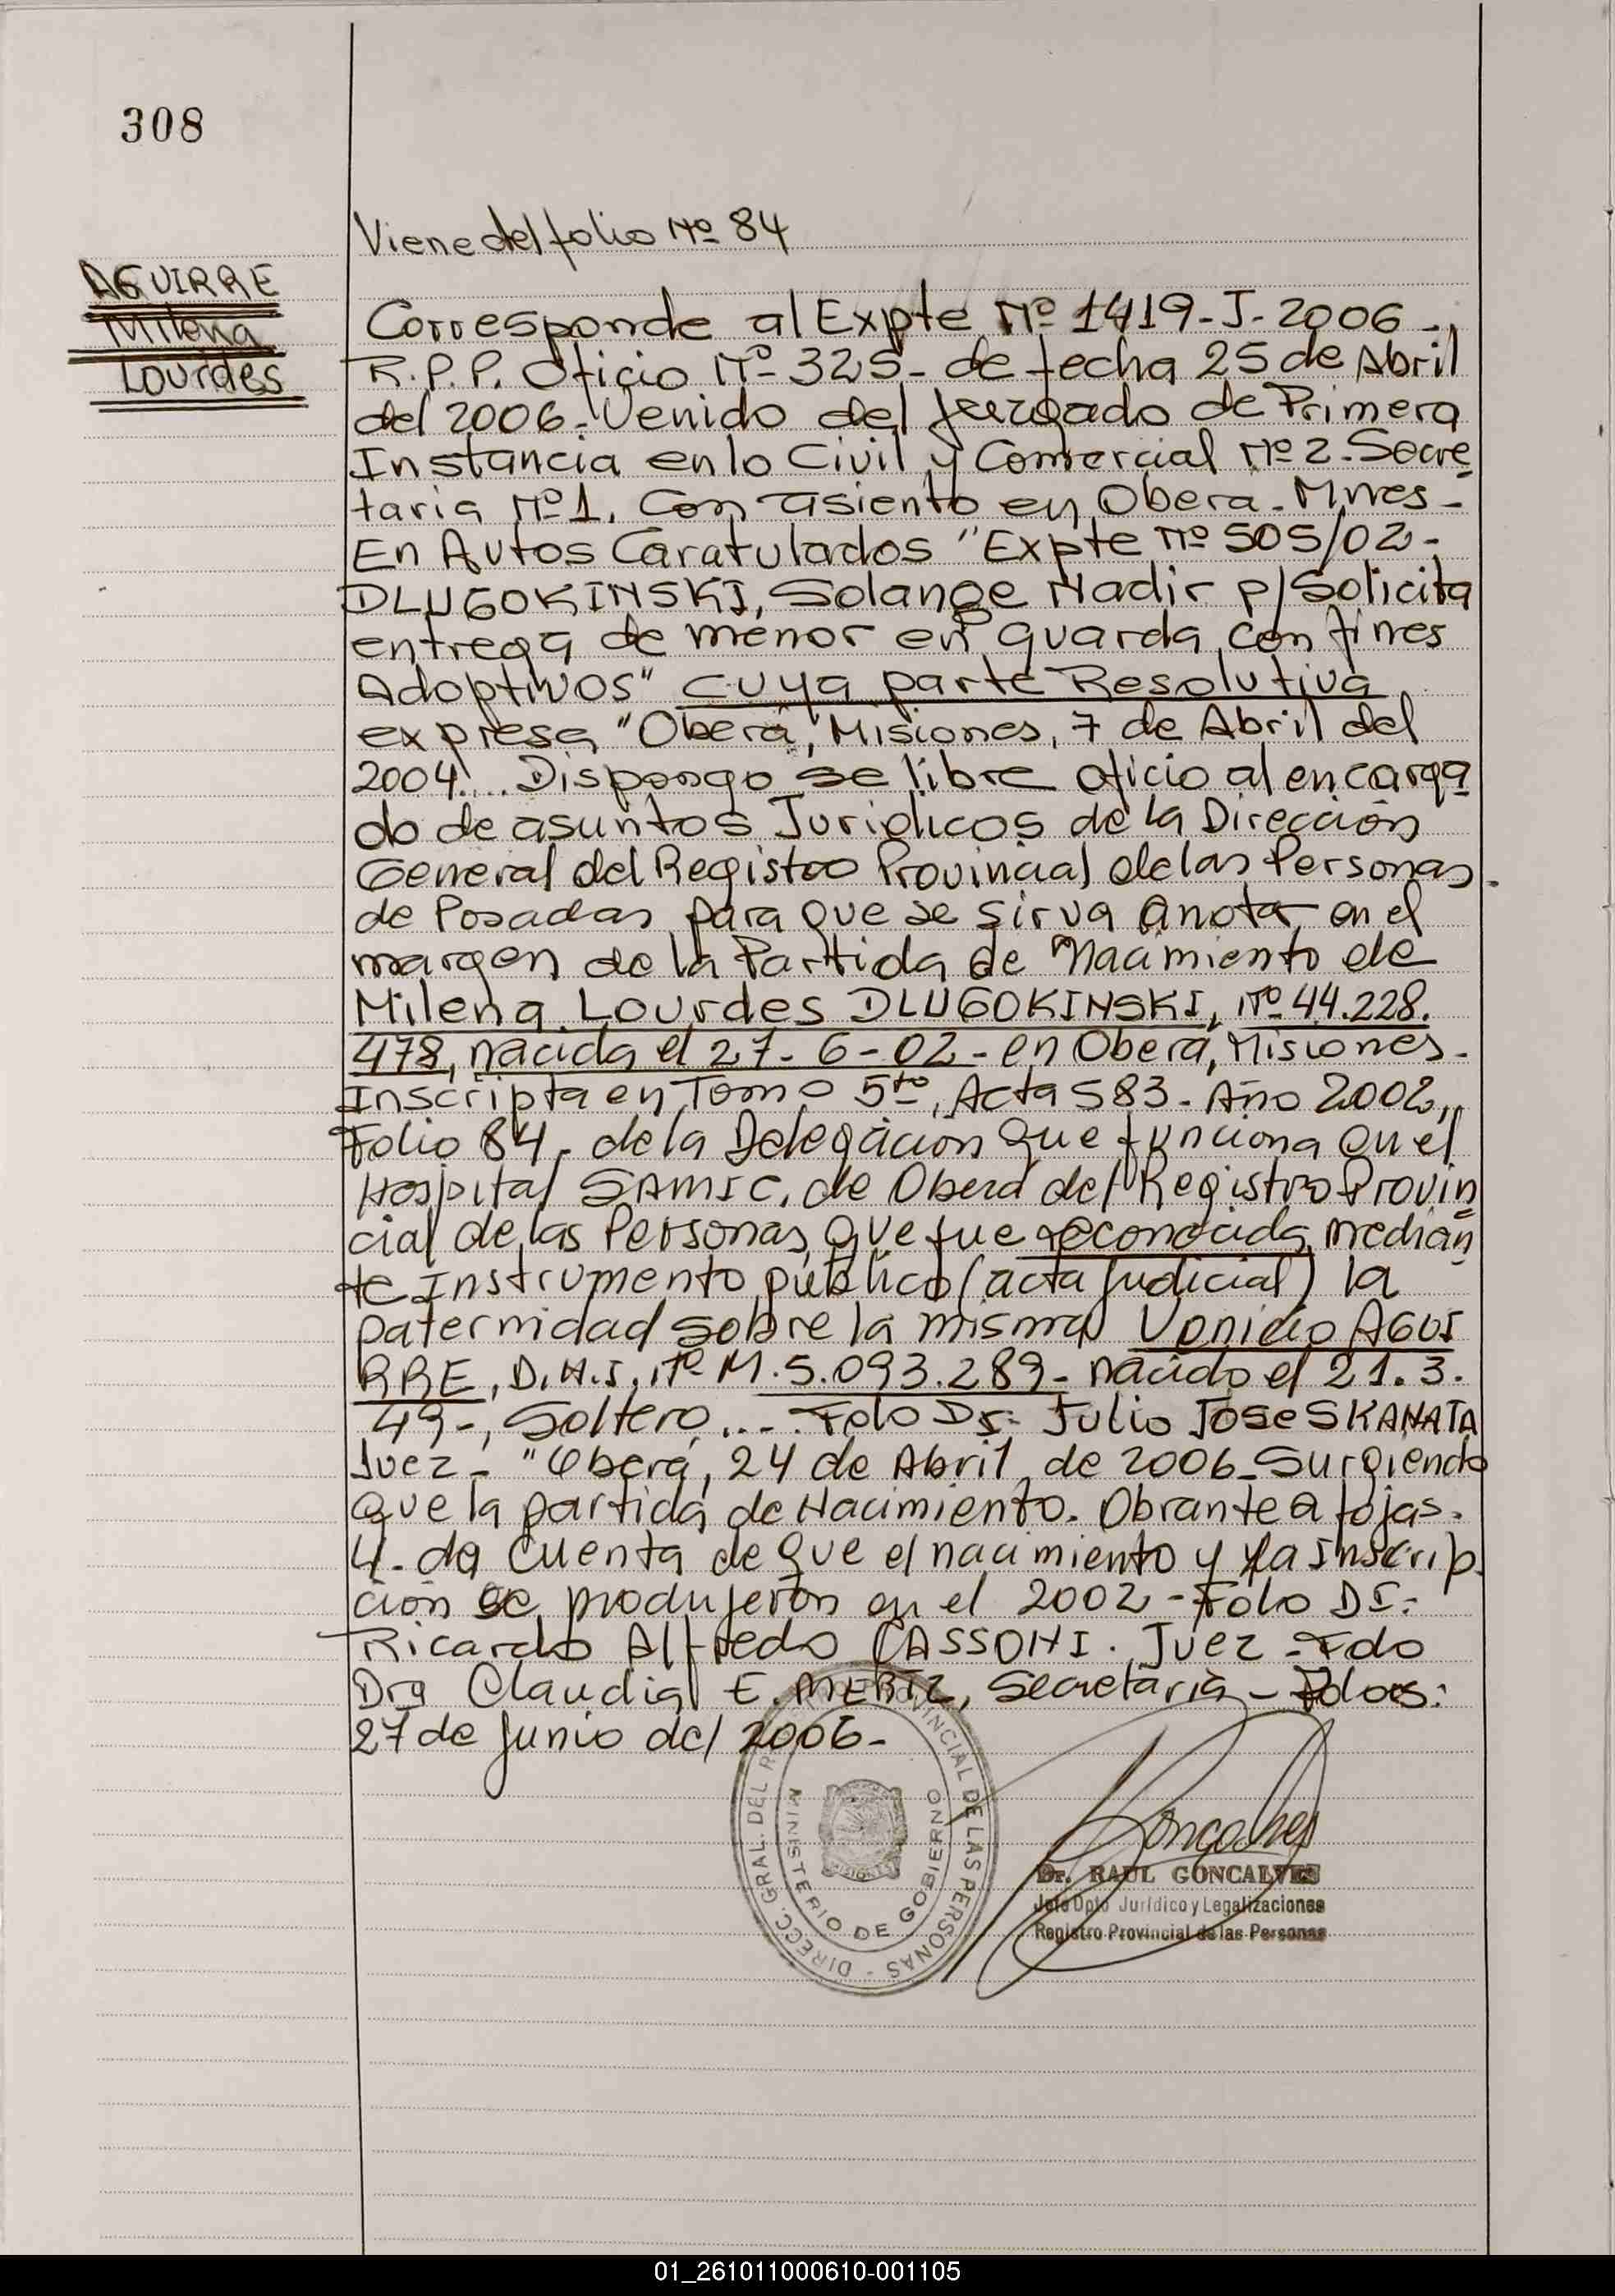 308
Viene del folio Nº 84
AGUIRRE
Milena
Lourdes
Corresponde al Expte Nº 1419-J-2006-
R.P.P. Oficio Nº 325- de fecha 25 de Abril
del 2006. Venido del Juzgado de Primera
Instancia en lo Civil y Comercial Nº 2-Secre
taria Nº 1, Con asiento en Obera-Mnes-
En Autos Caratulados "Expte nº 505/02-
DLUGOKINSKI, Solange Nadir p/Solicita
entrega de menor en guarda con fines
Adoptivos" cuya parte Resolutiva
expresa "Oberá, Misiones, 7 de Abril del
2004.... Dispongo se libre oficio al encarga
do de asuntos Juridicos de la Dirección
General del Registro Provincial de las Personas
de Posadas para que se sirva anotar en el
margen de la Partida de Nacimiento de
Milena Lourdes DLUGOKINSKI, Nº 44.228.
478, nacida el 27-6-02- en Oberá, Misiones-
Inscripta en Tomo 5to, Acta 583- Año 2002,
Folio 84- de la Delegación que funciona en el
Hospital SAMIC, de Oberá del Registro Provin
cial de las Personas, que fue reconocida median
te Instrumento público (acta Judicial) la
paternidad sobre la misma Venicio AGUI
RRE, D.N.I, Nº M.5.093.289- nacido el 21.3.
49-, Soltero.... Fdo Dr. Julio Jose SKANATA
Juez- "Oberá, 24 de Abril de 2006-Surgiendo
que la partida de Nacimiento. Obrante a fojas.
4- da cuenta de que el nacimiento y la Inscrip
ción se produjeron en el 2002-Fdo Dr.
Ricardo Alfredo CASSONI. Juez-Fdo
Dra Claudia E. MERTZ, Secretaria-Pdas:
27 de Junio del 2006-
DIRECC. GRAL. DEL REGISTRO PROVINCIAL DE LAS PERSONAS
MINISTERIO DE GOBIERNO
MISIONES
Goncalves
Dr. RAUL GONCALVES
Jefe Dpto Jurídico y Legalizaciones
Registro Provincial de las Personas
01_261011000610-001105